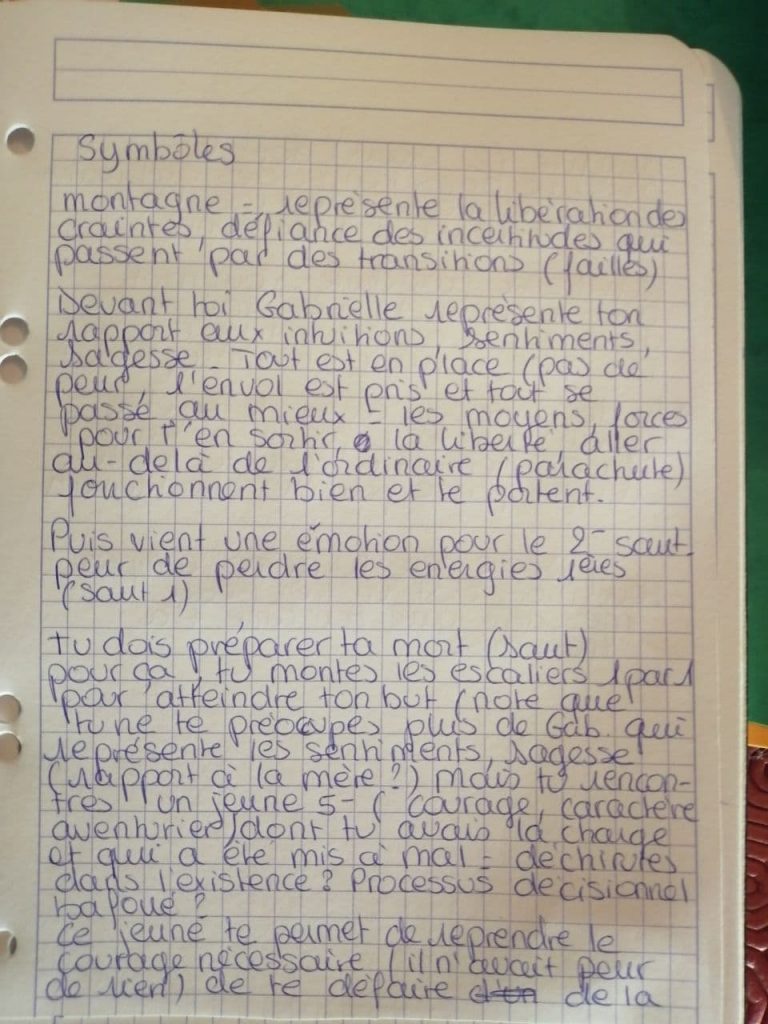 Symbôles
montagne = représente la libération des
craintes, défiance des incertitudes qui
passent par des transitions (failles)
Devant toi Gabrielle représente ton
rapport aux intuitions, sentiments,
sagesse. Tout est en place (pas de
peur, l'envol est pris et tout se
passe au mieux = les moyens, forces
pour t'en sortir, la liberté, aller
au-delà de l'ordinaire (parachute)
fonctionnent bien et te portent.
Puis vient une émotion pour le 2- saut.
peur de perdre les energies 1ères
(saut 1)
tu dois préparer ta mort (saut)
pour ça, tu montes les escaliers 1 par 1
pour atteindre ton but (note que
tu ne te préocupes plus de Gab. qui
représente les sentiments, sagesse
(rapport à la mère ?) mais tu rencon-
tres un jeune 5- ( courage, caractère
aventurier) dont tu avais la charge
et qui a été mis à mal = déchirures
dans l'existence ? Processus décisionnel
bafoué ?
Ce jeune te permet de reprendre le
courage nécessaire (il n'avait peur
de rien) de te défaire de la